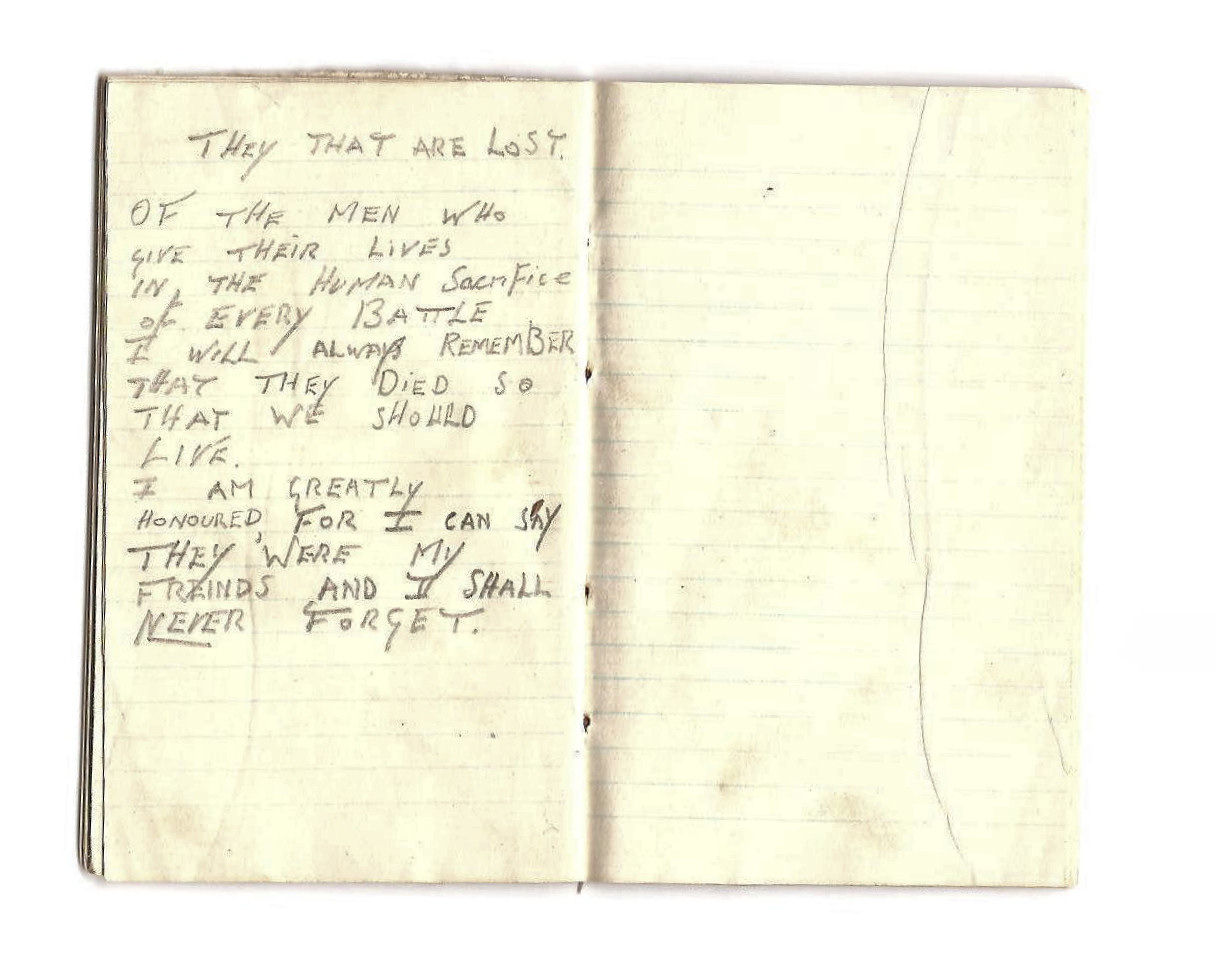 THEY THAT ARE LOST.
OF THE MEN WHO
GIVE THEIR LIVES
IN, THE HUMAN Sacrifice
of EVERY BATTLE
I WILL ALWAYS REMEMBER
THAT THEY DIED SO
THAT WE SHOULD
LIVE.
I AM GREATLY
HONOURED, FOR I CAN SAY
THEY WERE MY
FREINDS AND I SHALL
NEVER FORGET.